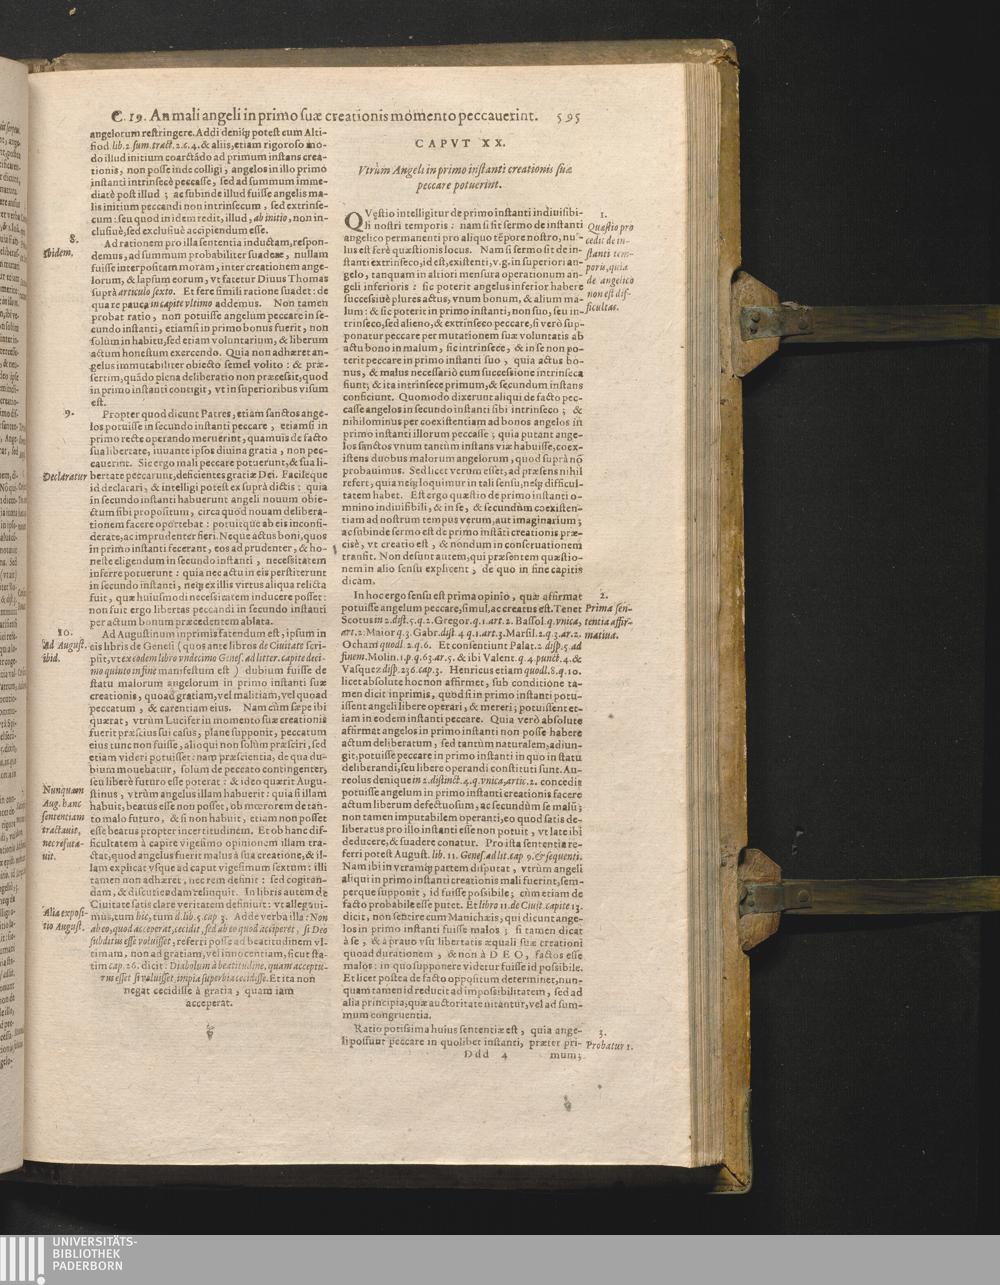 C. 19. An mali angeli in primo suæ creationis momento peccauerint. 595
angelorum restringere. Addi deniq; potest cum Alti-
siod. lib. 2 sum. tract. 2. c. 4. & aliis, etiam rigoroso mo-
do illud initium coarctādo ad primum instans crea-
tionis, non posse inde colligi, angelos in illo primo
instanti intrinsecè peccasse, sed ad summum imme-
diatè post illud; ac subinde illud fuisse angelis ma-
lis initium peccandi non intrinsecum, sed extrinse-
cum: seu quod in idem redit, illud, ab initio, non in-
clusiuè, sed exclusiuè accipiendum esse.
8.
Ibidem.
Ad rationem pro illa sententia inductam, respon-
demus, ad summum probabiliter suadere, nullam
fuisse interpositam moram, inter creationem ange-
lorum, & lapsum eorum, vt fatetur Diuus Thomas
suprà articulo sexto. Et fere simili ratione suadet: de
qua re pauca in capite vltimo addemus. Non tamen
probat ratio, non potuisse angelum peccare in se-
cundo instanti, etiamsi in primo bonus fuerit, non
solùm in habitu, sed etiam voluntarium, & liberum
actum honestum exercendo. Quia non adhæret an-
gelus immutabiliter obiecto semel volito: & præ-
sertim, quādo plena deliberatio non præcessit, quod
in primo instanti contigit, vt in superioribus visum
est.
9.
Propter quod dicunt Patres, etiam sanctos ange-
los potuisse in secundo instanti peccare, etiamsi in
primo recte operando meruerint, quamuis de facto
sua libertate, iuuante ipsos diuina gratia, non pec-
cauerint. Sic ergo mali peccare potuerunt, & sua li-
Declaratur
bertate peccarunt, deficientes gratiæ Dei. Facileque
id declarari, & intelligi potest ex suprà dictis: quia
in secundo instanti habuerunt angeli nouum obie-
ctum sibi propositum, circa quod nouam delibera-
tionem facere oportebat: potuitque ab eis inconsi-
derate, ac imprudenter fieri. Neque actus boni, quos
in primo instanti fecerant, eos ad prudenter, & ho-
neste eligendum in secundo instanti, necessitatem
inferre potuerunt: quia nec actu in eis perstiterunt
in secundo instanti, neq; ex illis virtus aliqua relicta
fuit, quæ huiusmodi necessitatem inducere posset:
non fuit ergo libertas peccandi in secundo instanti
per actum bonum præcedentem ablata.
10.
Ad August.
ibid.
Ad Augustinum inprimis fatendum est, ipsum in
eis libris de Genesi (quos ante libros de Ciuitate scri-
psit, vt ex eodem libro vndecimo Genes. ad litter. capite deci-
mo quinto in fine manifestum est) dubium fuisse de
statu malorum angelorum in primo instanti suæ
creationis, quoad gratiam, vel malitiam, vel quoad
peccatum, & carentiam eius. Nam cùm sæpe ibi
quærat, vtrùm Lucifer in momento suæ creationis
fuerit præscius sui casus, plane supponit, peccatum
eius tunc non fuisse, alioqui non solùm præsciri, sed
etiam videri potuisset: nam præscientia, de qua du-
bium mouebatur, solum de peccato contingenter,
seu liberè futuro esse poterat: & ideo quærit Augu-
Nunquam
Aug. hanc
sententiam
tractauit,
nec refuta-
uit.
stinus, vtrùm angelus illam habuerit: quia si illam
habuit, beatus esse non posset, ob mœrorem de tan-
to malo futuro, & si non habuit, etiam non posset
esse beatus propter incertitudinem. Et ob hanc dif-
ficultatem à capite vigesimo opinionem illam tra-
ctat, quod angelus fuerit malus à sua creatione, & il-
lam explicat vsque ad caput vigesimum sextum: illi
tamen non adhæret, nec rem definit: sed cogitan-
dam, & discutiendam relinquit. In libris autem de
Alia exposi-
tio August.
Ciuitate satis clare veritatem definiuit: vt allegaui-
mus, tum hic, tum d. lib. 5. cap 3. Adde verba illa: Non
ab eo, quod acceperat, cecidit, sed ab eo quod acciperet, si Deo
subditus esse voluisset, referri posse ad beatitudinem vl-
timam, non ad gratiam, vel innocentiam, sicut sta-
tim cap. 26. dicit: Diabolum à beatitudine, quam acceptu-
rus esset si voluisset, impia superbia cecidisse. Et ita non
negat cecidisse à gratia, quam iam
acceperat.
CAPVT XX.
Vtrùm Angeli in primo instanti creationis suæ
peccare potuerint.
1.
Quæstio pro
cedit de in-
stanti tem-
poris, quia
de angelico
non est dif-
ficultas.
QVęstio intelligitur de primo instanti indiuisibi-
li nostri temporis: nam si sit sermo de instanti
angelico permanenti pro aliquo tēpore nostro, nul-
lus est ferè quæstionis locus. Nam si sermo sit de in-
stanti extrinseco, id est, existenti, v. g. in superiori an-
gelo, tanquam in altiori mensura operationum an-
geli inferioris: sic poterit angelus inferior habere
successiuè plures actus, vnum bonum, & alium ma-
lum: & sic poterit in primo instanti, non suo, seu in-
trinseco, sed alieno, & extrinseco peccare, si verò sup-
ponatur peccare per mutationem suæ voluntatis ab
actu bono in malum, sic intrinsece, & in se non po-
terit peccare in primo instanti suo, quia actus bo-
nus, & malus necessariò cum successione intrinseca
fiunt; & ita intrinsece primum, & secundum instans
conficiunt. Quomodo dixerunt aliqui de facto pec-
casse angelos in secundo instanti sibi intrinseco; &
nihilominus per coexistentiam ad bonos angelos in
primo instanti illorum peccasse; quia putant ange-
los sanctos vnum tantùm instans viæ habuisse, coex-
istens duobus malorum angelorum, quod suprà nō
probauimus. Sed licet verum esset, ad præsens nihil
refert, quia neq; loquimur in tali sensu, neq; difficul-
tatem habet. Est ergo quæstio de primo instanti o-
mnino indiuisibili, & in se, & secundùm coexisten-
tiam ad nostrum tempus verum, aut imaginarium;
ac subinde sermo est de primo instāti creationis præ-
cisè, vt creatio est, & nondum in conseruationem
transit. Non desunt autem, qui præsentem quæstio-
nem in alio sensu explicent, de quo in fine capitis
dicam.
2.
Prima sen-
tentia affir-
matiua.
In hoc ergo sensu est prima opinio, quæ affirmat
potuisse angelum peccare, simul, ac creatus est. Tenet
Scotus in 2. dist. 5. q. 2. Gregor. q. 1. art. 2. Bassol. q. vnica,
art. 2. Maior q. 3. Gabr. dist. 4 q. 1. art. 3. Marsil. 2. q. 3. ar. 2.
Ocham quodl. 2. q. 6. Et consentiunt Palat. 2. disp. 5. ad
finem. Molin. 1. p. q. 63. ar. 5. & ibi Valent. q. 4. punct. 4. &
Vasquez disp. 236. cap. 3. Henricus etiam quodl. 8. q. 10.
licet absolute hoc non affirmet, sub conditione ta-
men dicit inprimis, quòd si in primo instanti potu-
issent angeli libere operari, & mereri; potuissent et-
iam in eodem instanti peccare. Quia verò absolute
affirmat angelos in primo instanti non posse habere
actum deliberatum, sed tantùm naturalem, adiun-
git, potuisse peccare in primo instanti in quo in statu
deliberandi, seu libere operandi constituti sunt. Au-
reolus denique in 2. distinct. 4. q. vnica, artic. 2. concedit
potuisse angelum in primo instanti creationis facere
actum liberum defectuosum, ac secundùm se malū;
non tamen imputabilem operanti, eo quod satis de-
liberatus pro illo instanti esse non potuit, vt late ibi
deducere, & suadere conatur. Pro ista sententia re-
ferri potest August. lib. 11. Genes. ad lit. cap 9. & sequenti.
Nam ibi in vtramq; partem disputat, vtrùm angeli
aliqui in primo instanti creationis mali fuerint, sem-
perque supponit, id fuisse possibile; cùm etiam de
facto probabile esse putet. Et libro 11. de Ciuit. capite 13.
dicit, non sentire cum Manichæis, qui dicunt ange-
los in primo instanti fuisse malos; si tamen dicat
à se, & à prauo vsu libertatis æquali suæ creationi
quoad durationem, & non à DEO, factos esse
malos: in quo supponere videtur fuisse id possibile.
Et licet postea de facto oppositum determinet, nun-
quam tamen id reducit ad impossibilitatem, sed ad
alia principia, quæ auctoritate nitantur, vel ad sum-
mum congruentia.
3.
Probatur 1.
Ratio potissima huius sententiæ est, quia ange-
li possunt peccare in quolibet instanti, præter pri-
Ddd 4 mum;
UNIVERSITÄTS-
BIBLIOTHEK
PADERBORN